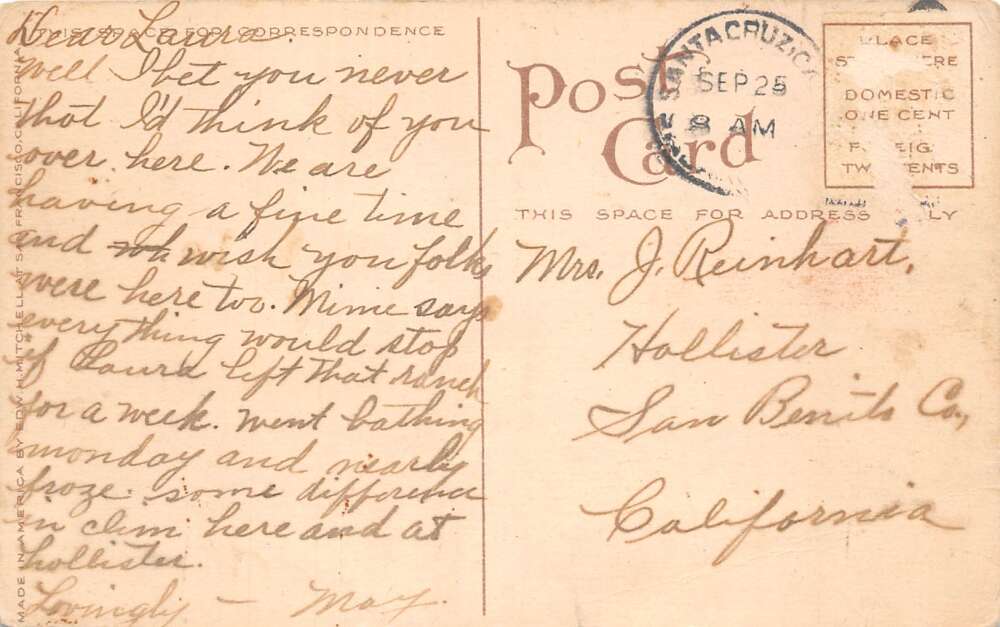 THIS SPACE FOR CORRESPONDENCE
Dear Laura.
Well I bet you never
that I'd think of you
over here. We are
having a fine time
and wish you folks
were here too. Mime says
everything would stop
if Laura left that ranch
for a week. Went bathing
monday and nearly
froze. some difference
in clim here and at
hollister.
Lovingly – May.
MADE IN AMERICA BY EDW. H. MITCHELL AT SAN FRANCISCO, CALIFORNIA
Post
Card
SANTA CRUZ, CA
SEP 25
8 AM
PLACE
ST HERE
DOMESTIC
ONE CENT
F EIG
TW ENTS
THIS SPACE FOR ADDRESS LY
Mrs. J. Reinhart,
Hollister
San Benito Co.,
California